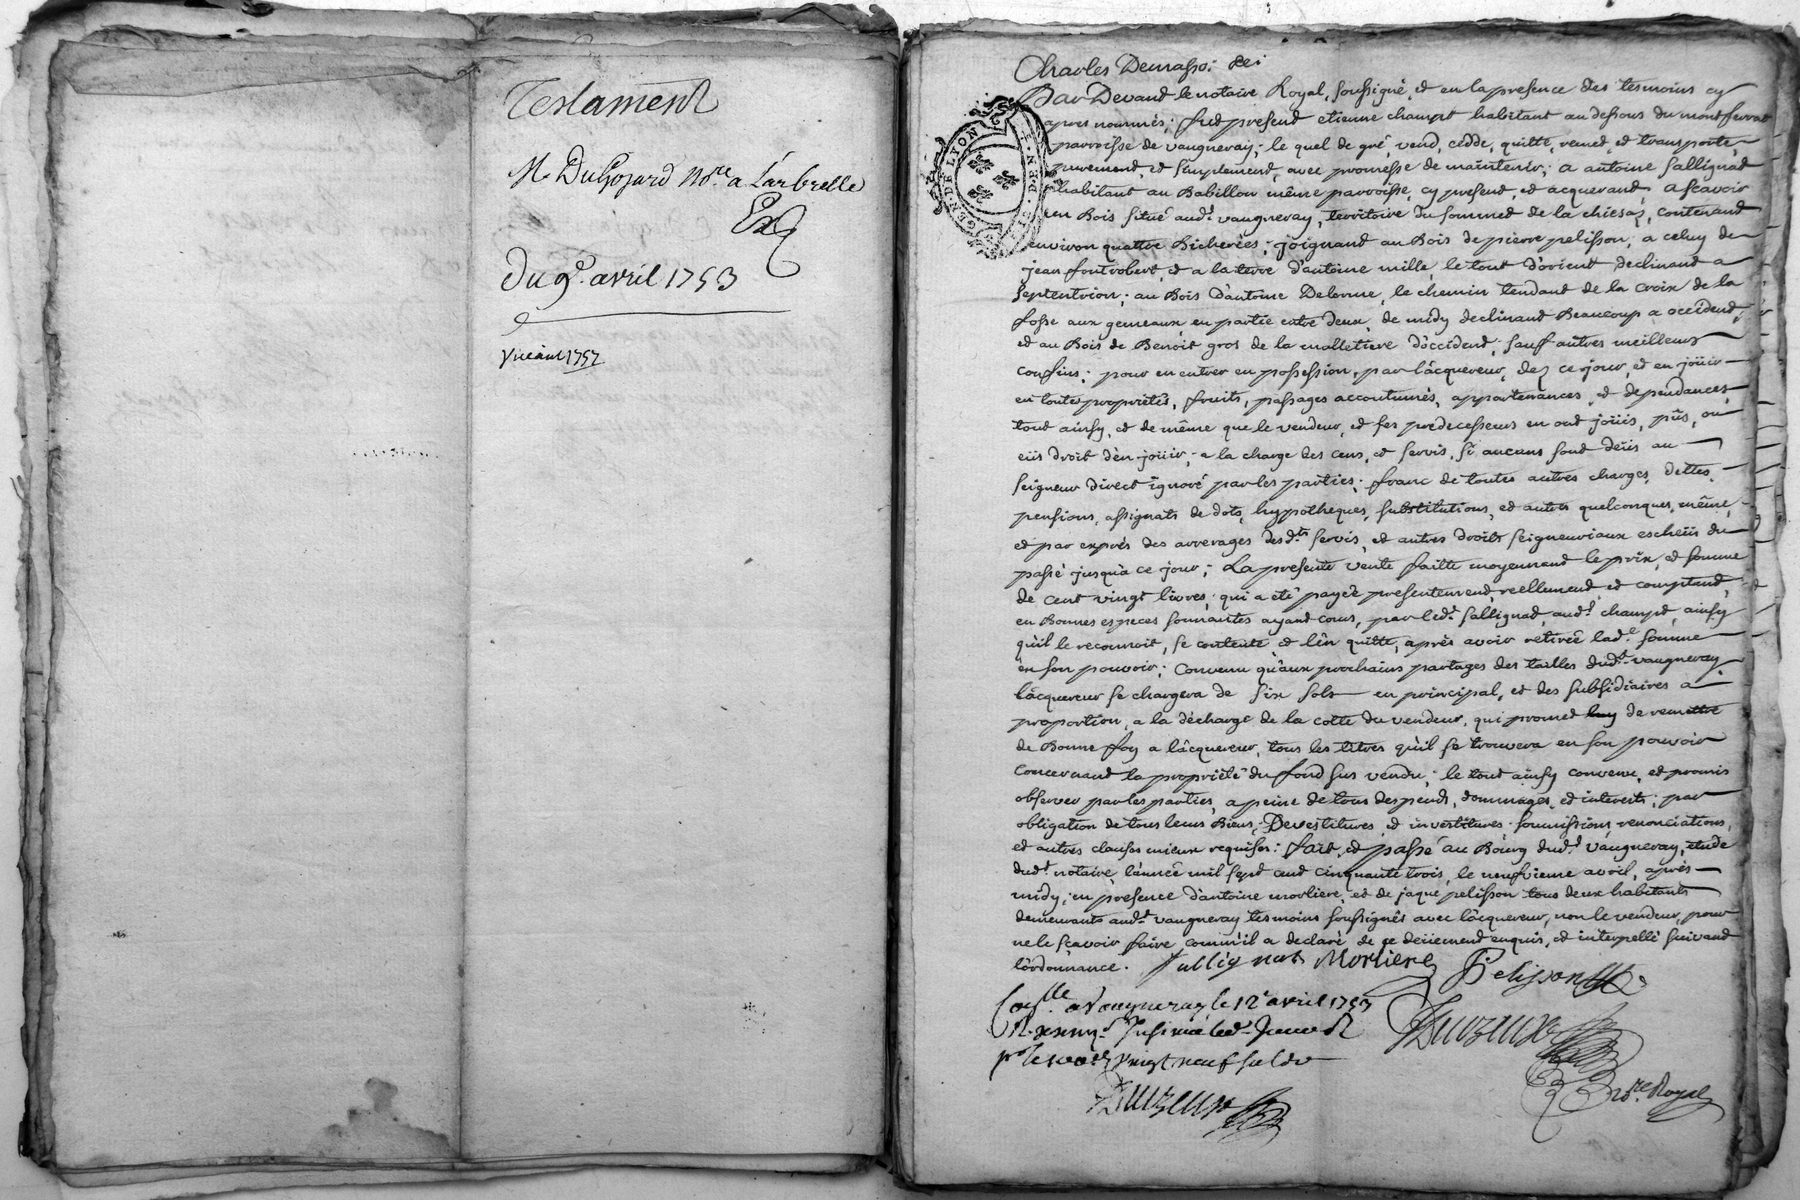 Testament
Me Dugoyard No.re a L'arbrelle
Ex
Du 9e. avril 1753
Charles
Par Devand le notaire Royal, soussigné, et en la presence des tesmoins cy
apres nommés; fut present etienne champt habitant au dessous du montferrat
parroisse de vaugneray; le quel de gré vend, cédde, quitte, remet, et transporte,
purement, et simplement, avec promesse de maintenir; a antoine sallignat
habitant au Babillon même parroisse, cy present, et acquerand, a scavoir
un Bois situé aud.t vaugneray, territoire du sommet de la chiesaz, contenand
environ quattre Bicherées; joignand au Bois de pierre pelisson, a celuy de
jean fontrobert, et a la terre d'antoine mille, le tout d'orient declinand a
septentrion; au Bois d'antoine Delorme, le chemin tendant de la croix de la
fosse aux gemeaux, en partie entre deux, de midy declinand Beaucoup a occident;
et au Bois de Benoit gros de la malletiere d'occident; sauf autres meilleurs
confins; pour en entrer en possession, par l'acquereur, dez ce jour, et en joüir
en toutes proprietés, fruits, passages accoutumés, appartenances, et dependances,
tout ainsy, et de même que le vendeur, et ses predecesseurs en ont joüis, pûs, ou
eüs droit d'en joüir; a la charge des cens, et servis, si aucuns sont deüs au
seigneur direct ignoré par les parties; franc de toutes autres charges, dettes,
pensions, assignats de dots, hypotheques, substitutions, et autres quelconques, même,
et par exprés des arrerages desd.ts servis, et autres droits seigneuriaux escheüs du
passé jusqu'a ce jour; La presente vente faitte moyennand le prix, et somme
de cent vingt livres; qui a eté payée presentement, reellement, et comptand,
en Bonnes especes sonnantes ayand cours, par led.t sallignat, aud.t champt, ainsy
qu'il le reconnoit, se contente et l'en quitte, après avoir retirée lad.e somme
en son pouvoir; Convenu qu'aux prochains partages des tailles dud.t vaugneray
l'acquereur se chargera de six sols en principal, et des subsidiaires a
proportion, a la décharge de la cotte du vendeur, qui promet luy de remettre
de Bonne foy a l'acquereur, tous les titres qu'il se trouvera en son pouvoir
concernand la proprieté du fond sus vendu; le tout ainsy convenu, et promis
observer par les parties, a peine de tous despends, dommages, et interests; par
obligation de tous leurs Biens, Devestitures, et investitures, soumissions, renonciations,
et autres clauses mieux requises: fait, et passé au Bourg dud.t vaugneray, etude
dud.t notaire, l'année mil sept cent cinquante trois, le neufvieme avril, après
midy; en presence d'antoine morliere, et de jaque pelisson tous deux habitants
demeurants aud.t vaugneray tesmoins soussignés avec l'acquereur, non le vendeur, pour
ne le scavoir faire, comm'il a declaré, de ce deüement enquis, et interpellé suivand
l'ordonnance. Sallignat Morliere Pelisson
Con.lle a Vaugneray, le 12e avril 1753
vingt neuf sols
no.re Royal